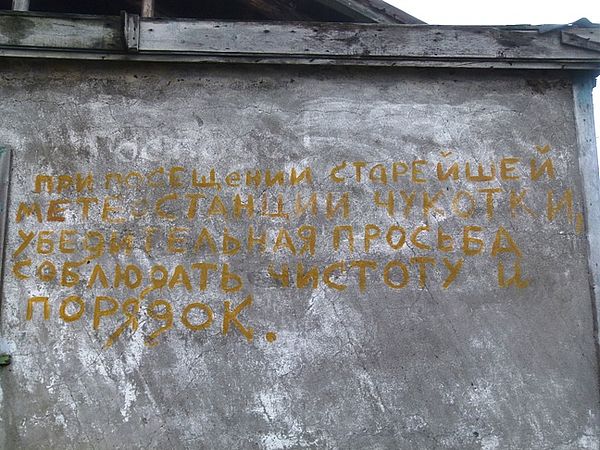 ПРИ ПОСЕЩЕНИИ СТАРЕЙШЕЙ
МЕТЕОСТАНЦИИ ЧУКОТКИ,
УБЕДИТЕЛЬНАЯ ПРОСЬБА
СОБЛЮДАТЬ ЧИСТОТУ И
ПОРЯДОК.